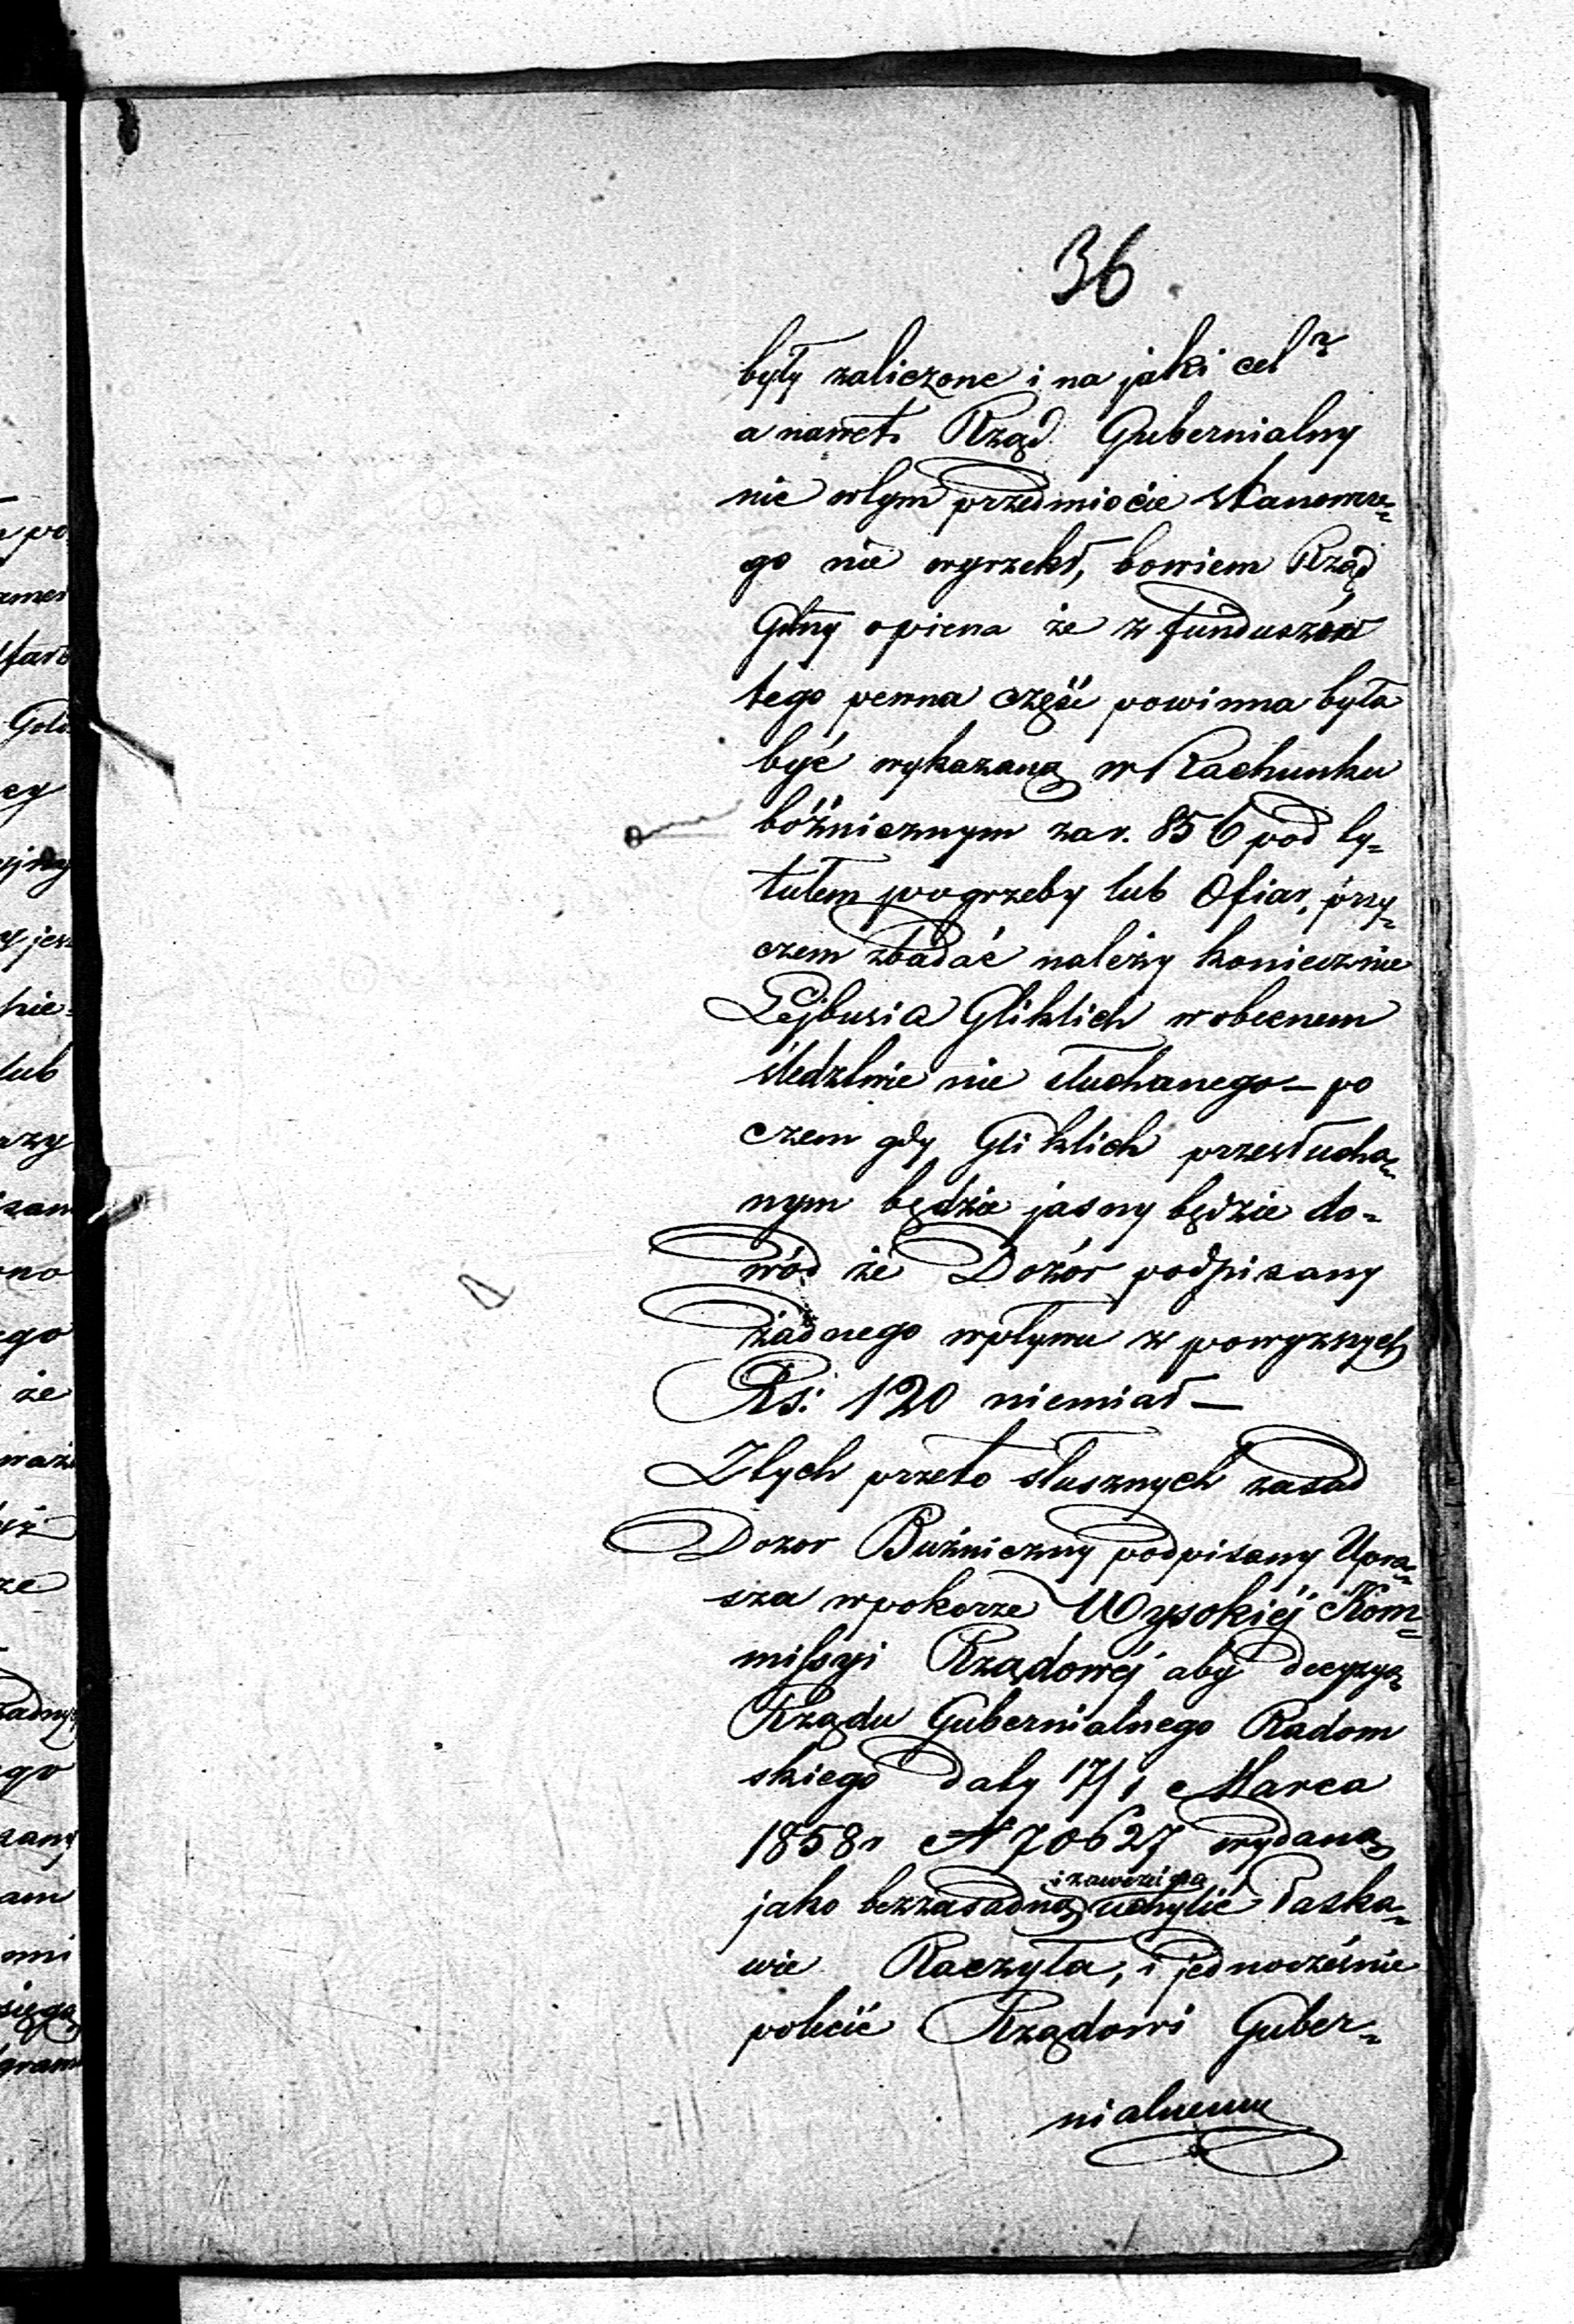 36
były zaliczone i na jaki cel?
a nawet Rząd Gubernialny
nic wtym przedmiocie stanowcze=
go nie wyrzekł, bowiem Rząd
Gblny opiewa że z funduszów
tego pewna część powinna była
być wykazaną w Rachunku
bóżnicznym za r. 856 pod ty=
tułem pogrzeby lub Ofiar, przy=
czem zbadać należy koniecznie
Lejbusia Gliklich w obecnem
śledztwie nie słuchanego — po
czem gdy Gliklich przesłucha=
nym będzie jasny będzie do=
wód że Dozór podpisany
żadnego wpływu z powyzszych
Rs: 120 niemiał —
Ztych przeto słusznych zasad
Dozor Buźniczny podpisany Upra=
sza wpokorze Wysokiéj Kom=
missyi Rządowéj aby decyzyą
Rządu Gubernialnego Radom
skiego daty 17/ Marca
1858 r N 70627 wydaną
jako bezzasadną uchylić łaska=
wie Raczyła, i jednocześnie
polecić Rządowi Guber=
nialnemu